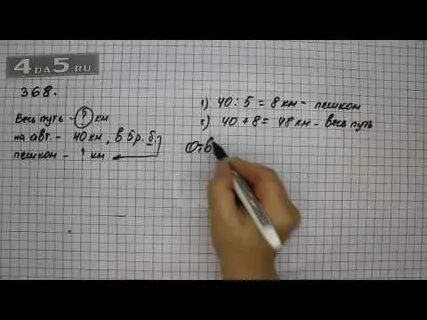 4DA5.RU
368.
Весь путь - ? км
на авт. - 40 км, в 5 р. б.
пешком - ? км
1) 40 : 5 = 8 км - пешком
2) 40 + 8 = 48 км - весь путь
Отв